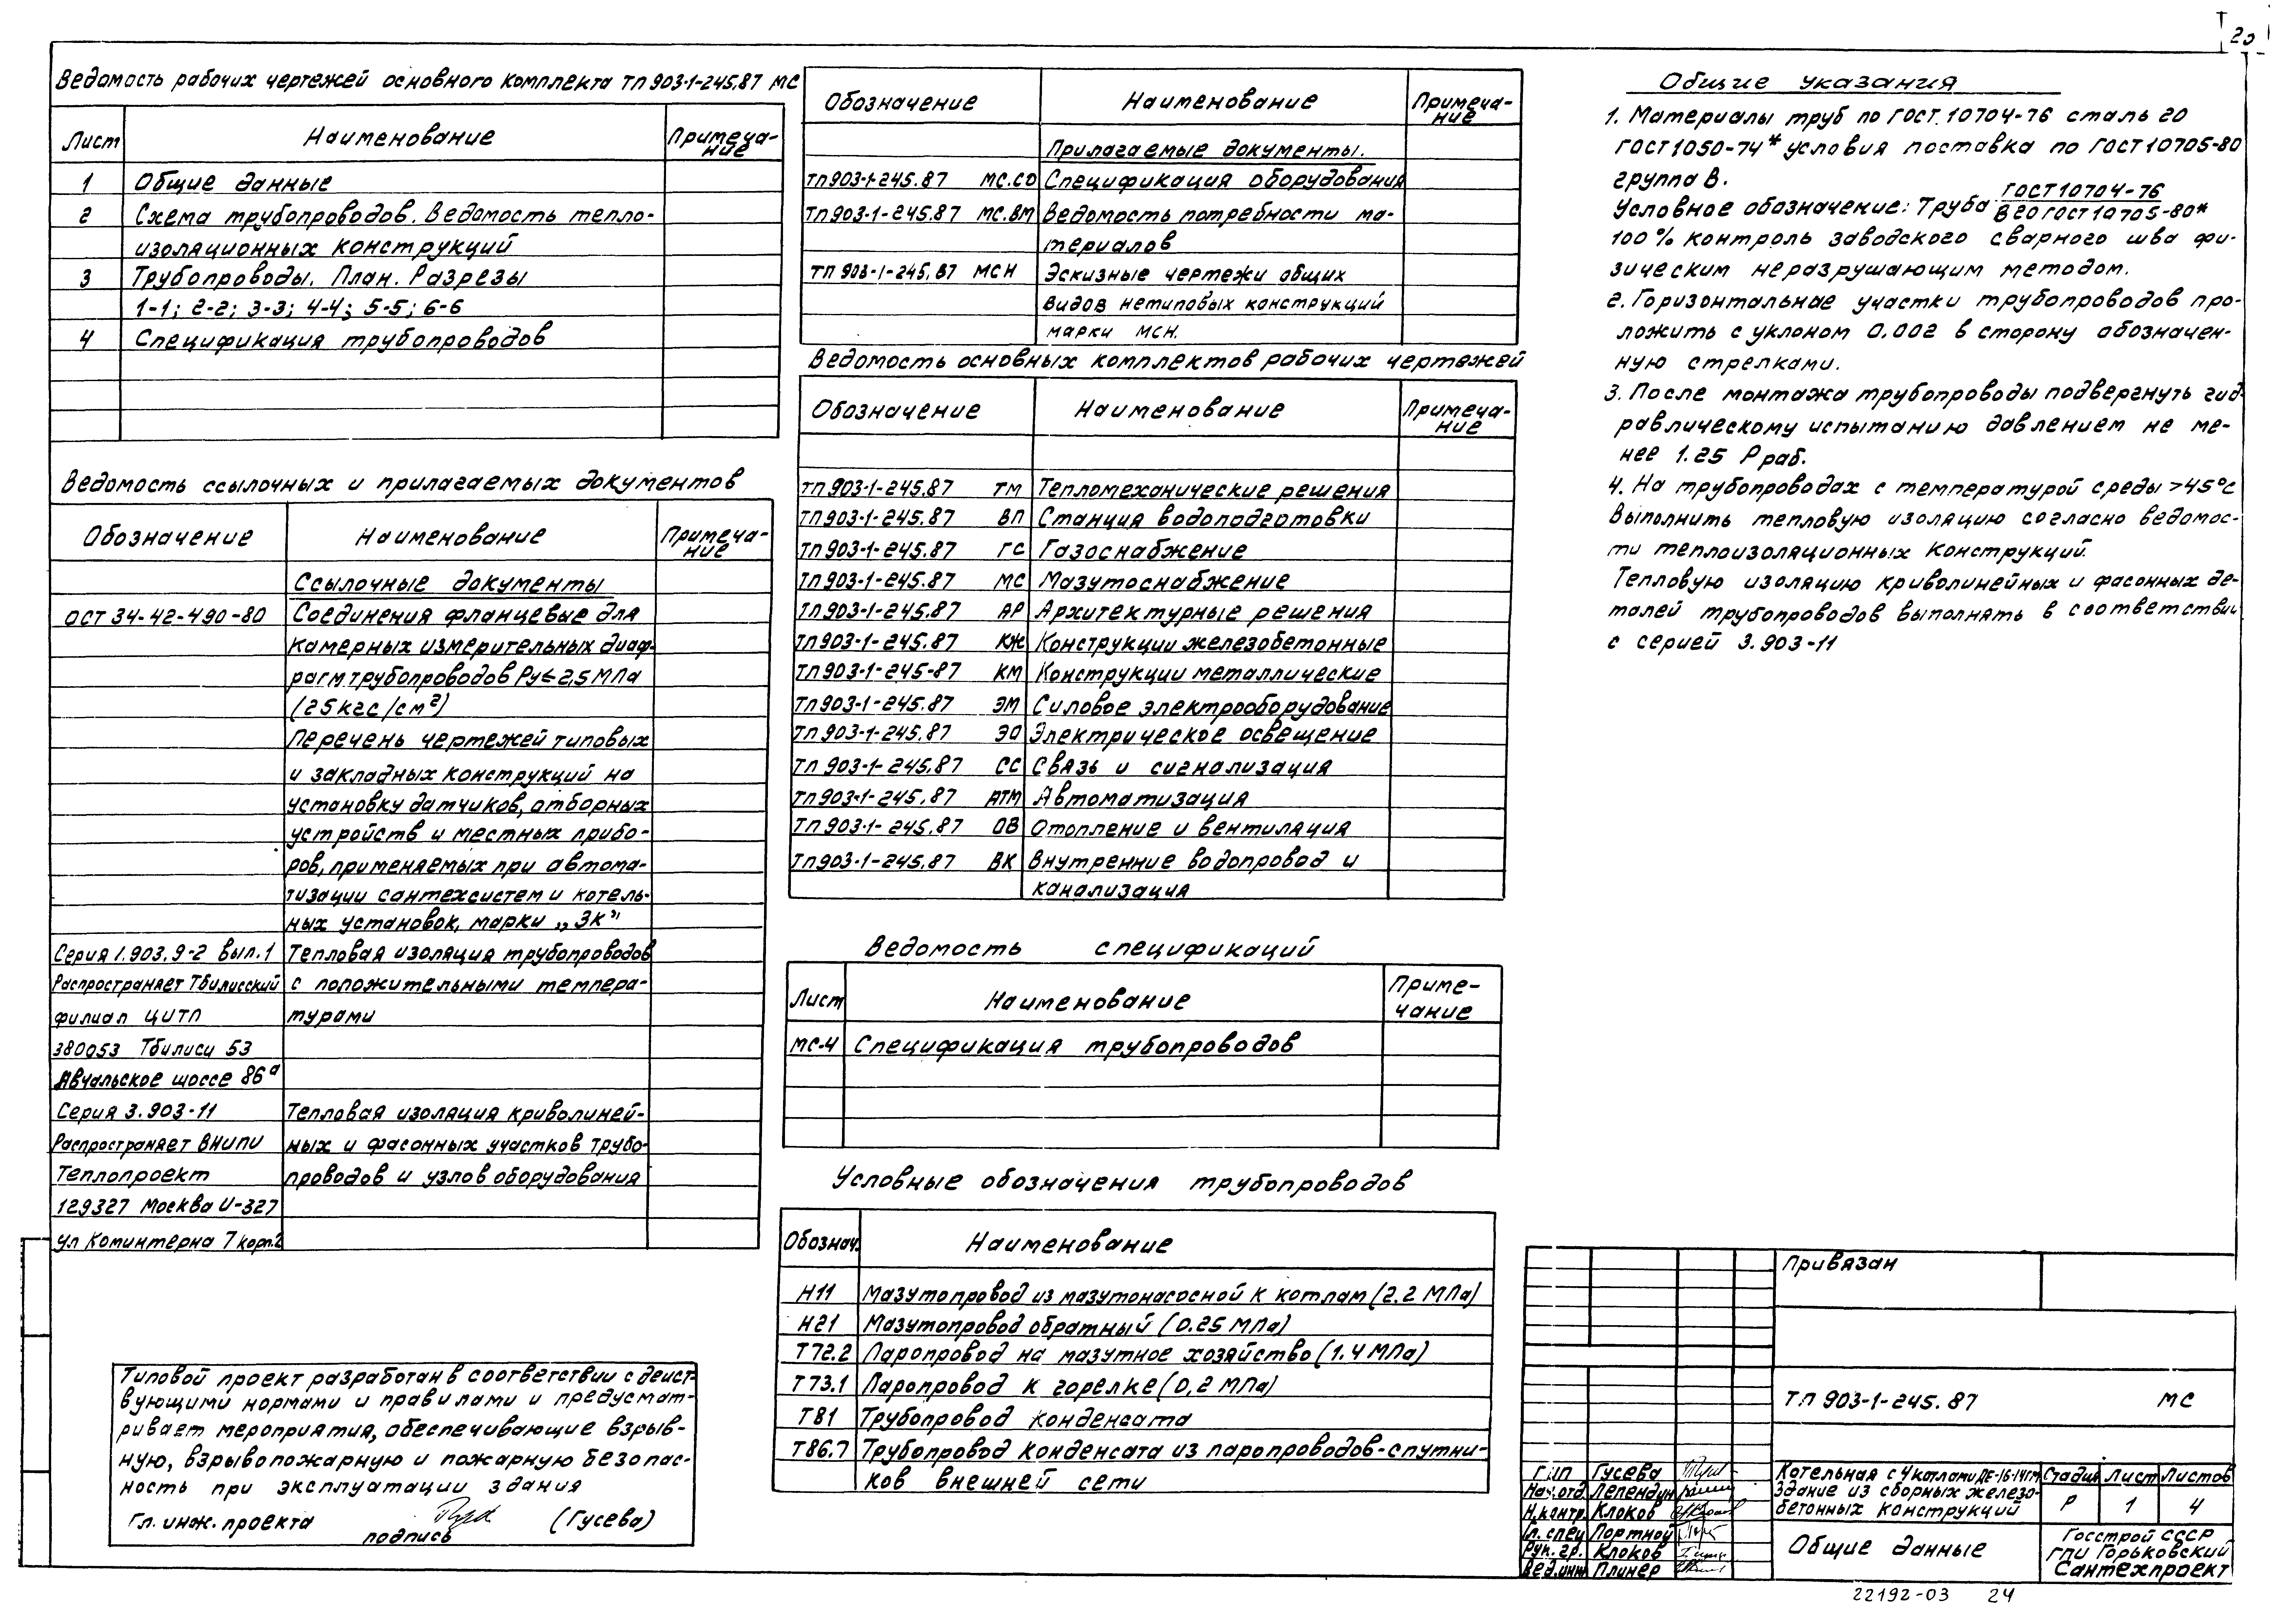 20
Ведомость рабочих чертежей основного комплекта ТП 903-1-245.87 МС
Лист Наименование Примеча-
ние
1 Общие данные
2 Схема трубопроводов. Ведомость тепло-
изоляционных конструкций
3 Трубопроводы. План. Разрезы
1-1; 2-2; 3-3; 4-4; 5-5; 6-6
4 Спецификация трубопроводов
Ведомость ссылочных и прилагаемых документов
Обозначение Наименование Примеча-
ние
Ссылочные документы
ОСТ 34-42-490-80 Соединения фланцевые для
камерных измерительных диаф-
рагм трубопроводов Ру≤2,5 МПа
(25 кгс/см²)
Перечень чертежей типовых
и закладных конструкций на
установку датчиков, отборных
устройств и местных прибо-
ров, применяемых при автома-
тизации сантехсистем и котель-
ных установок, марки „ЗК"
Серия 1.903.9-2 вып.1 Тепловая изоляция трубопроводов
Распространяет Тбилисский с положительными темпера-
филиал ЦИТП турами
380053 Тбилиси 53
Авчальское шоссе 86а
Серия 3.903-11 Тепловая изоляция криволиней-
Распространяет ВНИПИ ных и фасонных участков трубо-
Теплопроект проводов и узлов оборудования
129327 Москва И-327
ул Коминтерна 7 корп.2
Типовой проект разработан в соответствии с дейст-
вующими нормами и правилами и предусмат-
ривает мероприятия, обеспечивающие взрыв-
ную, взрывопожарную и пожарную безопас-
ность при эксплуатации здания
Гл. инж. проекта (Гусева)
подпись
Обозначение Наименование Примеча-
ние
Прилагаемые документы.
ТП 903-1-245.87 МС.СО Спецификация оборудования
ТП 903-1-245.87 МС.ВМ Ведомость потребности ма-
териалов
ТП 903-1-245.87 МСН Эскизные чертежи общих
видов нетиповых конструкций
марки МСН.
Ведомость основных комплектов рабочих чертежей
Обозначение Наименование Примеча-
ние
ТП 903-1-245.87 ТМ Тепломеханические решения
ТП 903-1-245.87 ВП Станция водоподготовки
ТП 903-1-245.87 ГС Газоснабжение
ТП 903-1-245.87 МС Мазутоснабжение
ТП 903-1-245.87 АР Архитектурные решения
ТП 903-1-245.87 КЖ Конструкции железобетонные
ТП 903-1-245-87 КМ Конструкции металлические
ТП 903-1-245.87 ЭМ Силовое электрооборудование
ТП 903-1-245.87 ЭО Электрическое освещение
ТП 903-1-245.87 СС Связь и сигнализация
ТП 903-1-245.87 АТМ Автоматизация
ТП 903-1-245.87 ОВ Отопление и вентиляция
ТП 903-1-245.87 ВК Внутренние водопровод и
канализация
Ведомость спецификаций
Лист Наименование Приме-
чание
МС-4 Спецификация трубопроводов
Условные обозначения трубопроводов
Обознач. Наименование
Н11 Мазутопровод из мазутонасосной к котлам (2.2 МПа)
Н21 Мазутопровод обратный (0.25 МПа)
Т72.2 Паропровод на мазутное хозяйство (1.4 МПа)
Т73.1 Паропровод к горелке (0,2 МПа)
Т81 Трубопровод конденсата
Т86.7 Трубопровод конденсата из паропроводов-спутни-
ков внешней сети
Общие указания
1. Материалы труб по ГОСТ 10704-76 сталь 20
ГОСТ 1050-74* условия поставка по ГОСТ 10705-80
группа В.
Условное обозначение: Труба ГОСТ 10704-76
В 20 ГОСТ 10705-80*
100% контроль заводского сварного шва фи-
зическим неразрушающим методом.
2. Горизонтальные участки трубопроводов про-
ложить с уклоном 0.002 в сторону обозначен-
ную стрелками.
3. После монтажа трубопроводы подвергнуть гид-
равлическому испытанию давлением не ме-
нее 1.25 Р раб.
4. На трубопроводах с температурой среды >45°С
выполнить тепловую изоляцию согласно ведомос-
ти теплоизоляционных конструкций.
Тепловую изоляцию криволинейных и фасонных де-
талей трубопроводов выполнять в соответствии
с серией 3.903-11
Привязан
ТП 903-1-245.87 МС
ГИП Гусева
Нач.отд. Лепендин
Н.контр. Клоков
Гл. спец Портной
Рук. гр. Клоков
Вед.инж Плинер
Котельная с 4 котлами ДЕ-16-14ГМ
Здание из сборных железо-
бетонных конструкций
Стадия Лист Листов
Р 1 4
Общие данные
Госстрой СССР
ГПИ Горьковский
Сантехпроект
22192-03 24